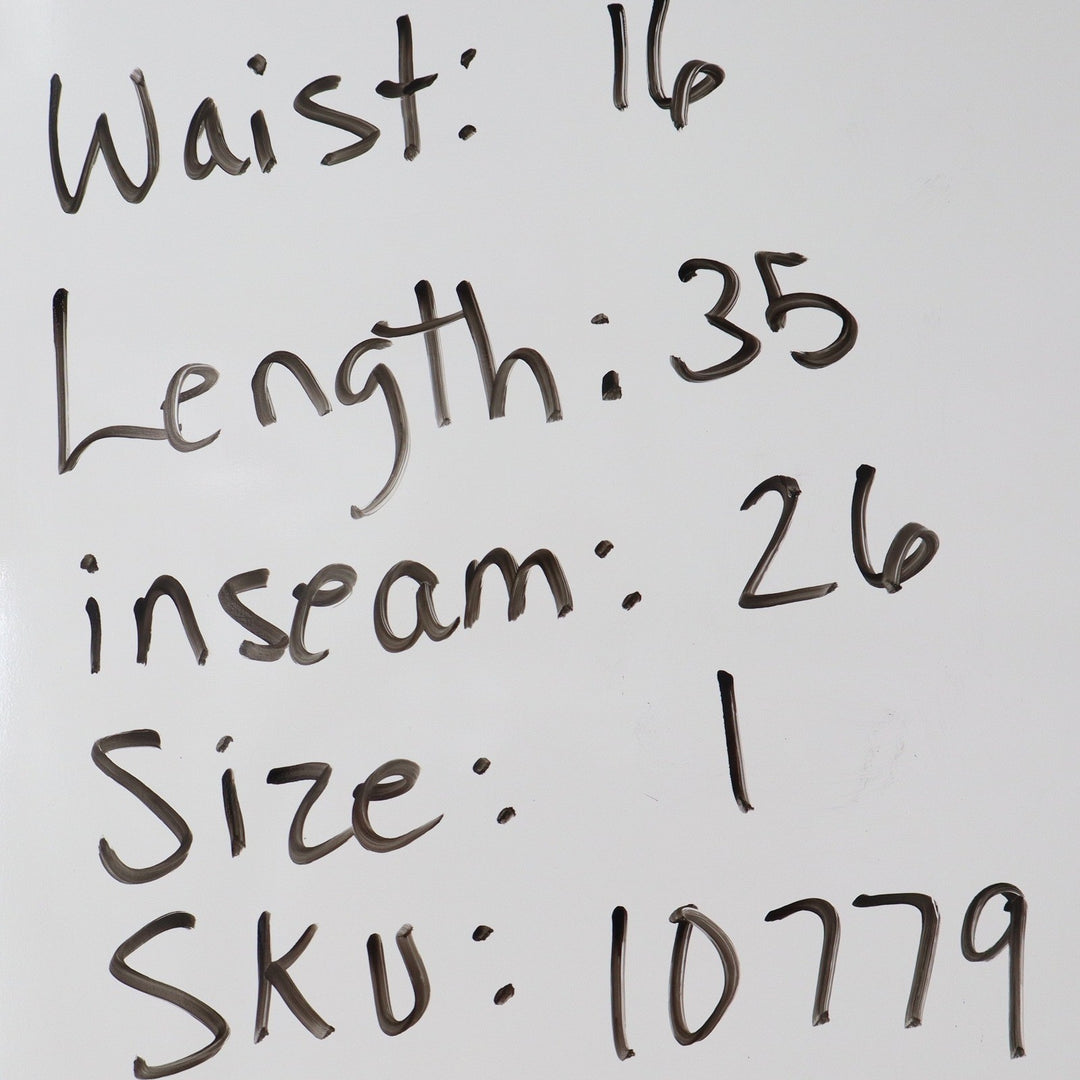 Waist: 16
Length: 35
inseam: 26
Size: 1
SKU: 10779